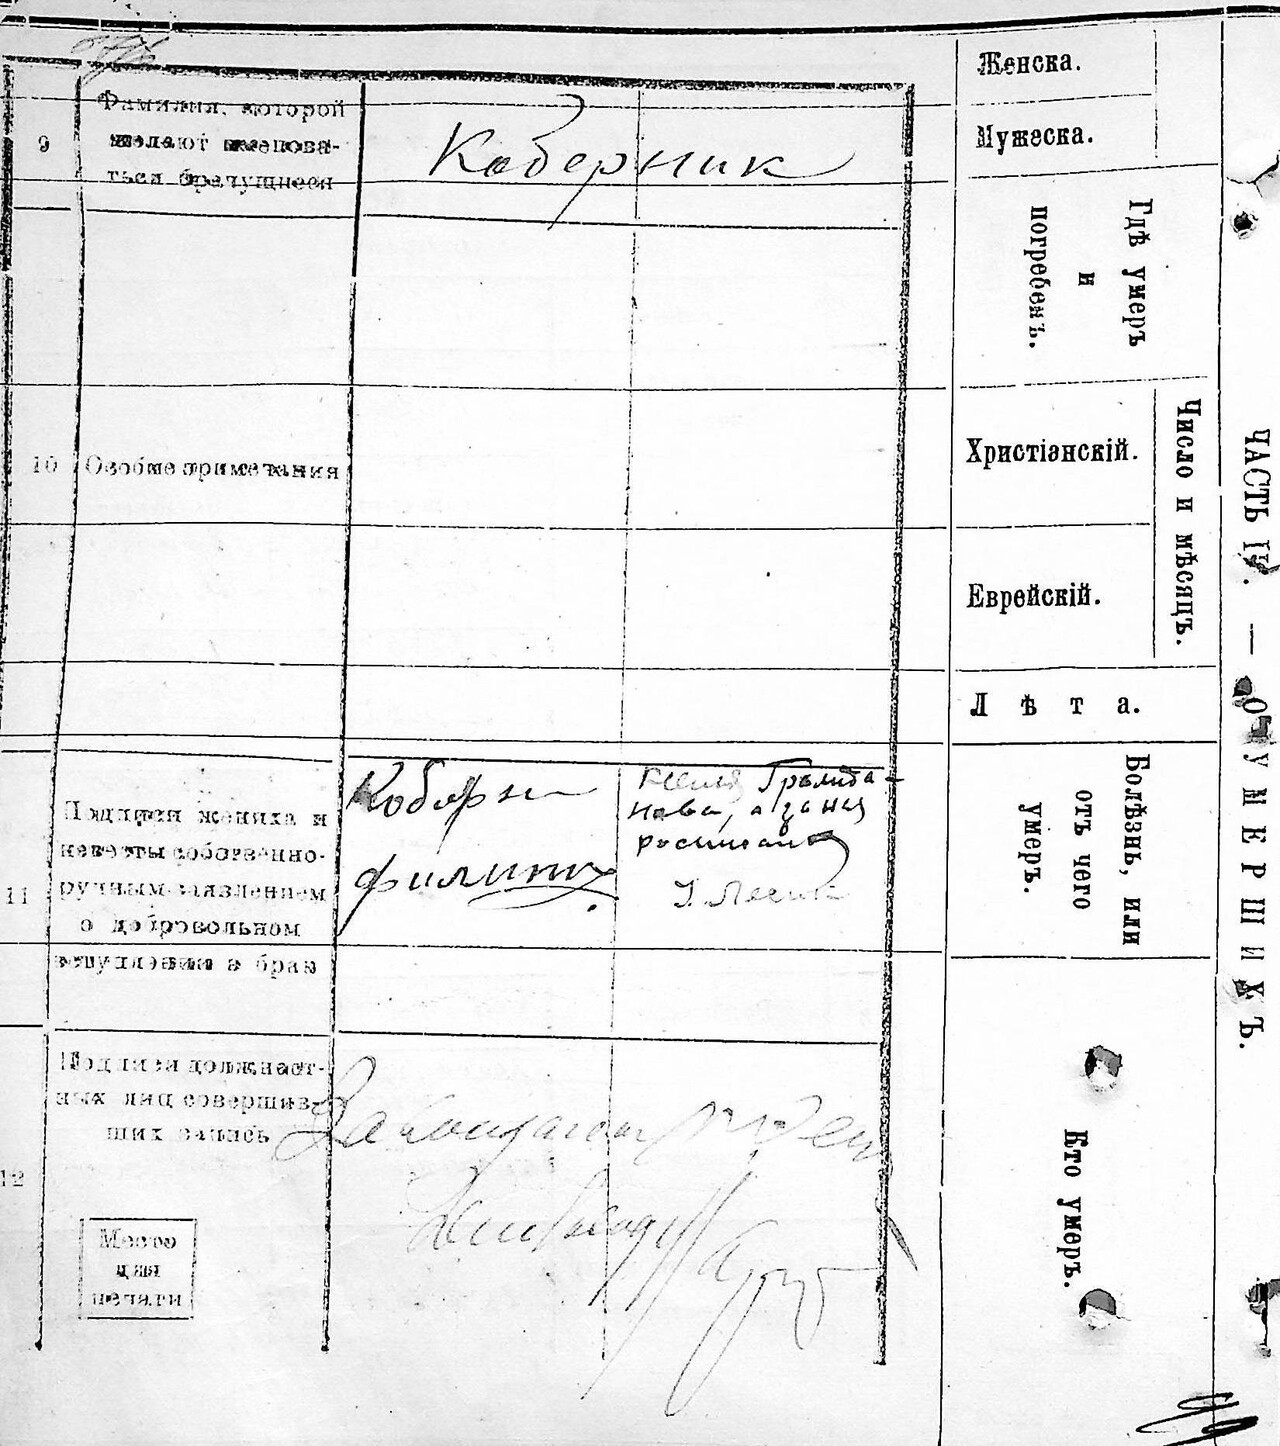 9
Фамилия, которой
желают именова-
ться брачущиеся
Коберник
10
Особые примечания
11
Подписи жениха и
невесты собственно-
ручным заявлением
о добровольном
вступлении в брак
Филипп
Грамида-
нова, а за нея
12
Подписи должност-
ных лиц совершив-
ших запись
Место
для
печати
Женска.
Мужеска.
Гдѣ умеръ
и
погребенъ.
Число и мѣсяцъ.
Христіанскій.
Еврейскій.
Лѣта.
Болѣзнь, или
отъ чего
умеръ.
Кто умеръ.
ЧАСТЬ IV. — О УМЕРШИХЪ.